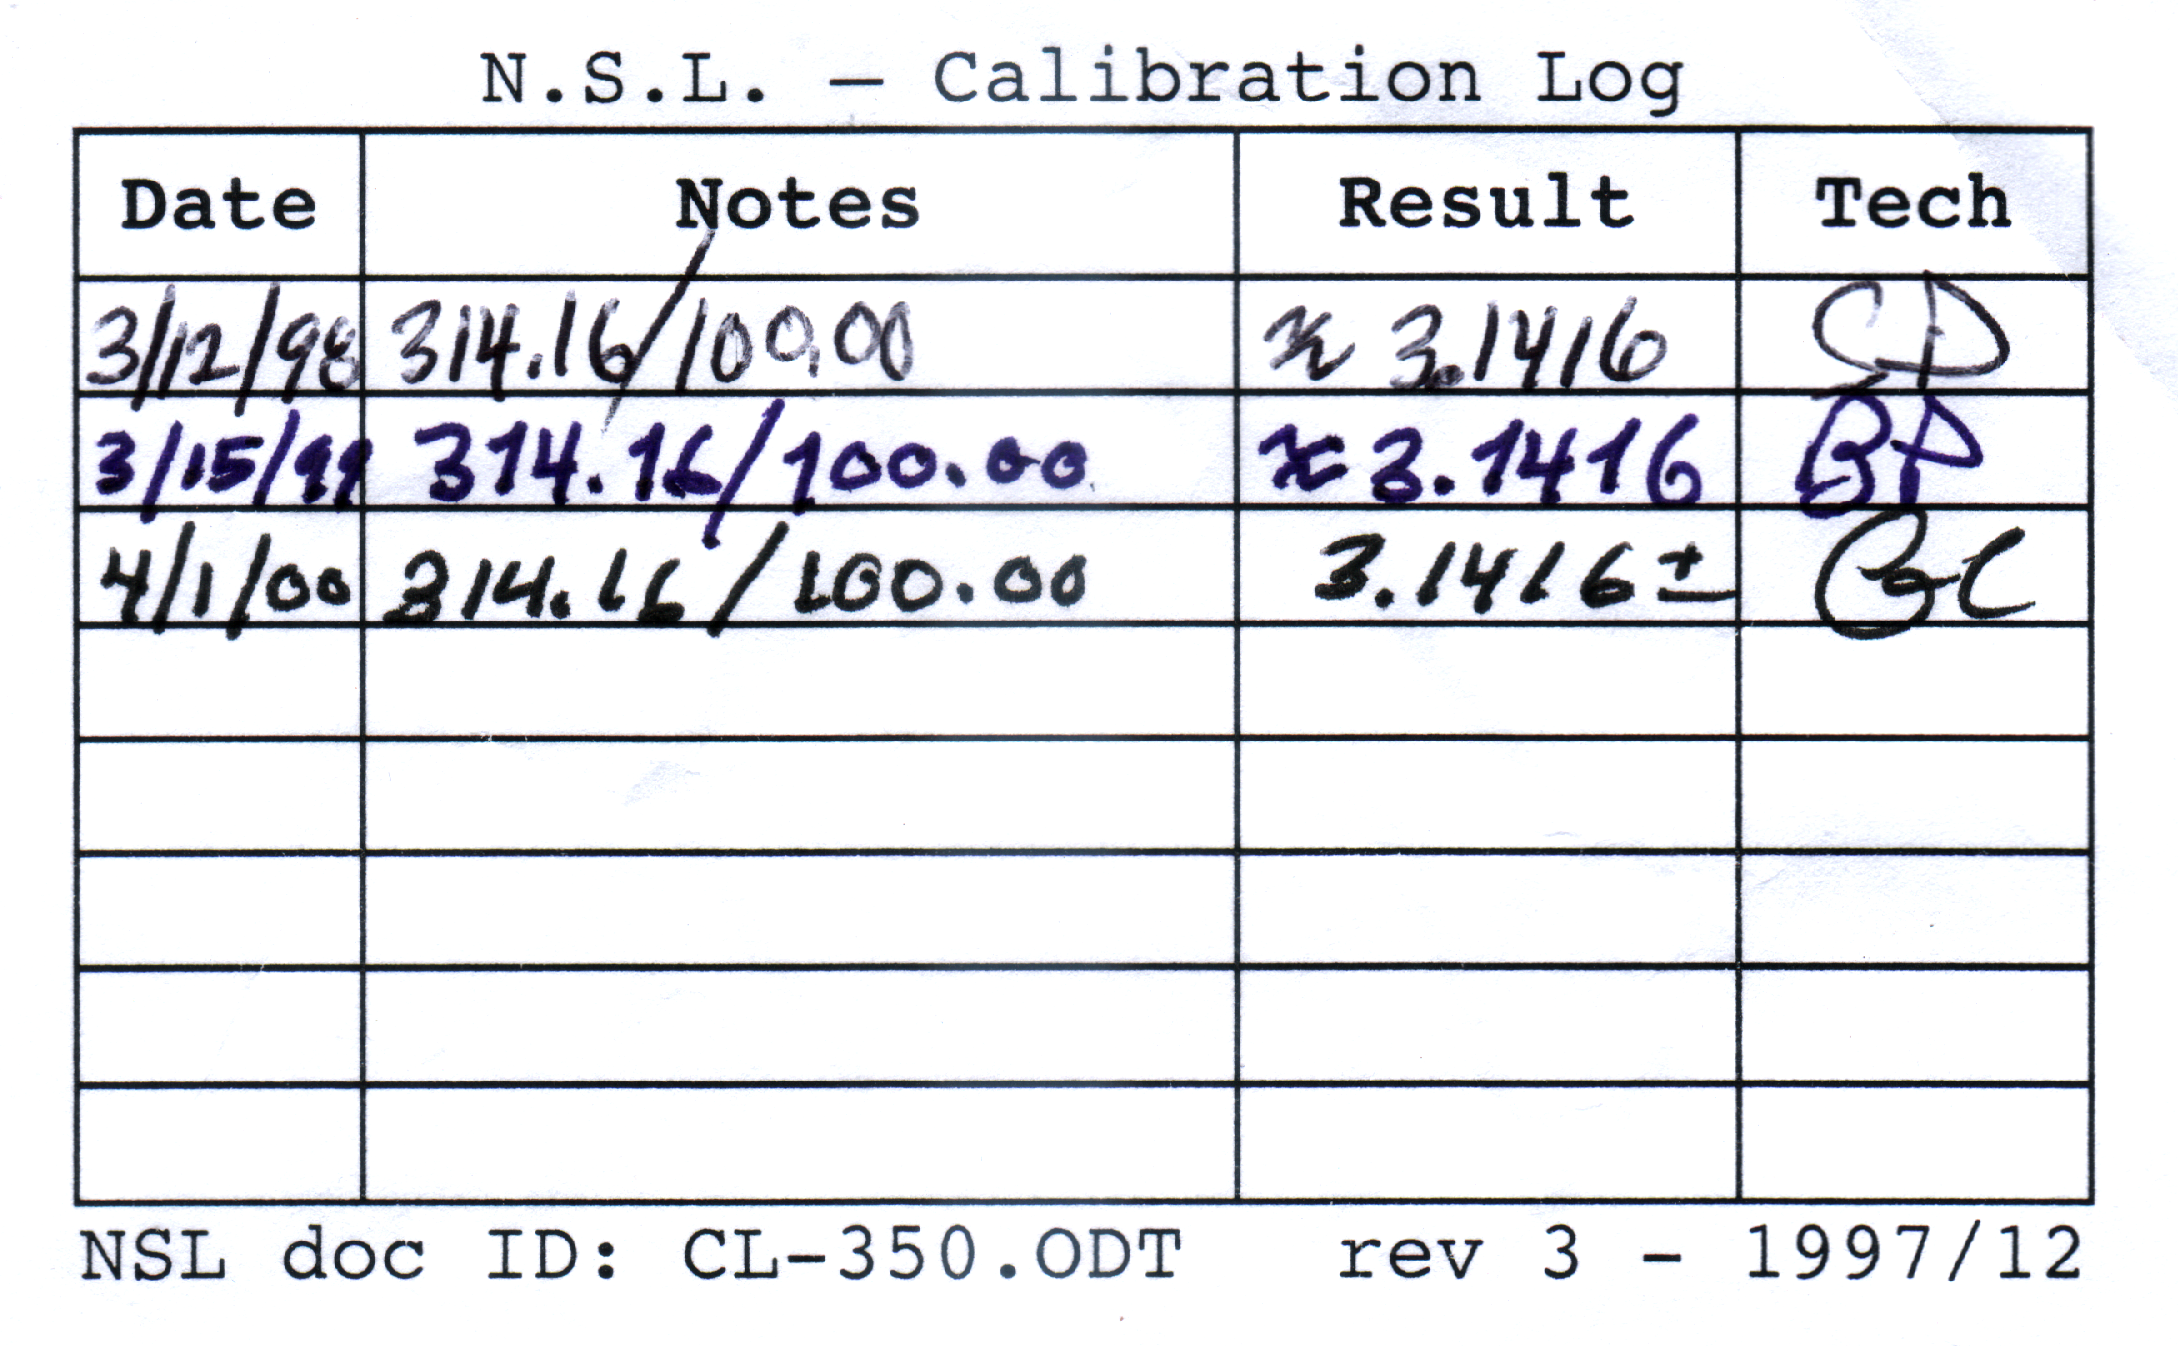 N.S.L. — Calibration Log
Date Notes Result Tech
3/12/98 314.16/100.00 ≈ 3.1416 CD
3/15/99 314.16/100.00 ≈ 3.1416 BP
4/1/00 314.16/100.00 3.1416±
NSL doc ID: CL-350.ODT rev 3 - 1997/12